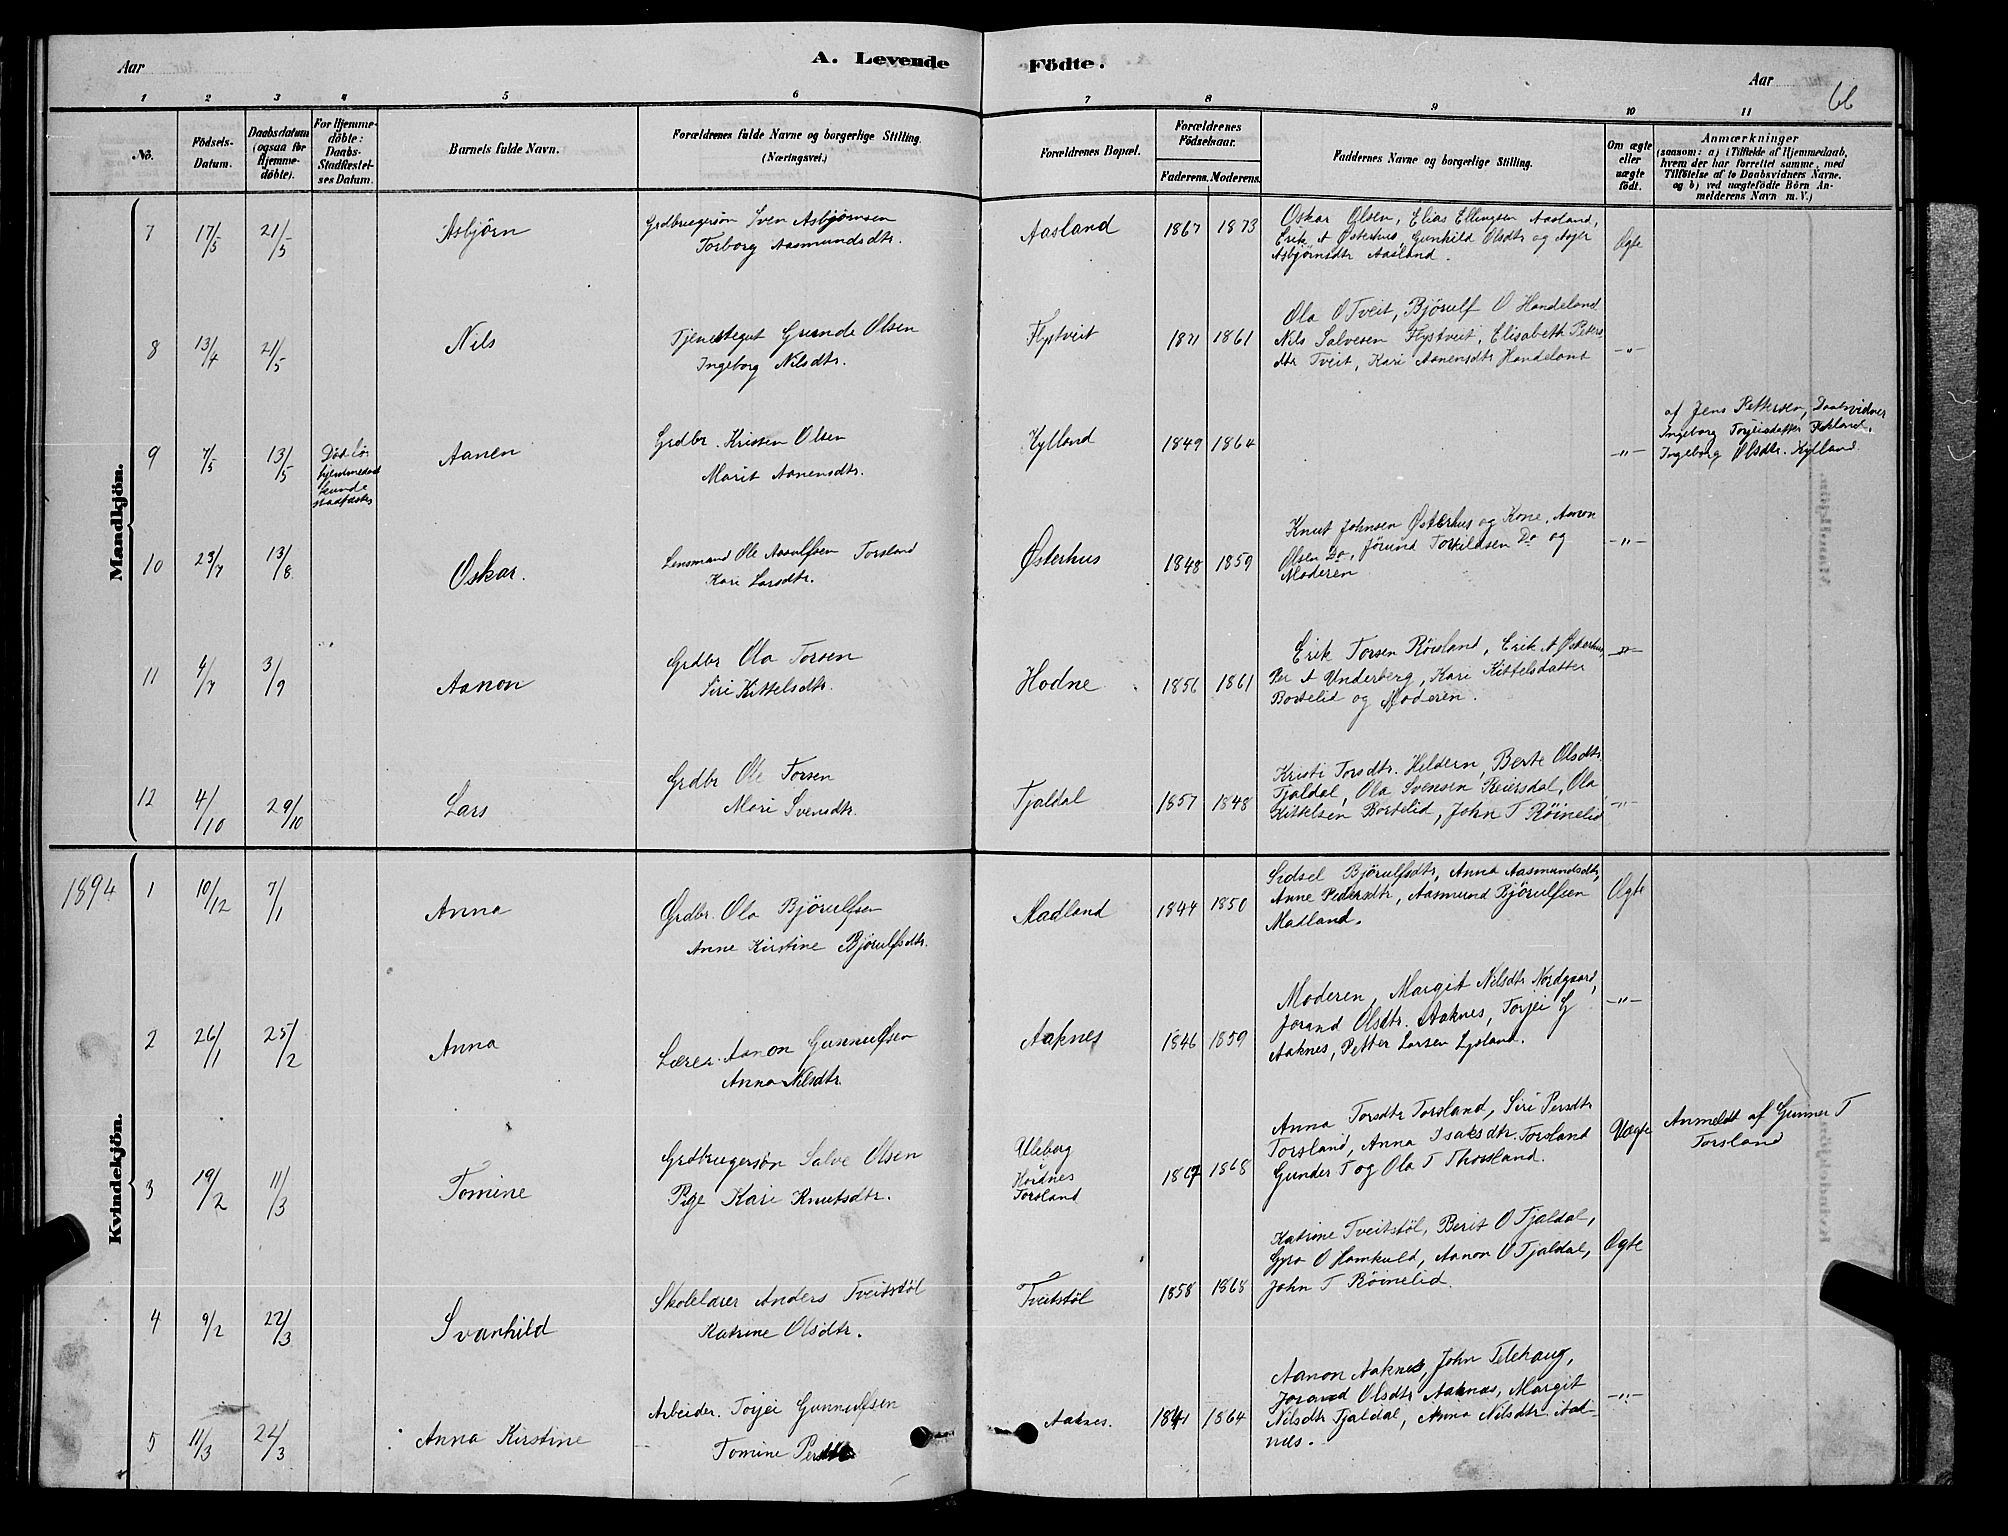 Aar
A. Levende
Födte.
Aar
66
1 2 3 4 5 6 7 8 9 10 11
No.
Födsels-
Datum.
Daabsdatum
(ogsaa for
Hjemme-
döbte).
For Hjemme-
döbte:
Daabs-
Stadfæstel-
ses Datum.
Barnets fulde Navn.
Forældrenes fulde Navne og borgerlige Stilling.
(Næringsvei.)
Forældrenes Bopæl.
Forældrenes
Födselsaar.
Faderens. Moderens.
Faddernes Navne og borgerlige Stilling.
Om ægte
eller
uægte
födt.
Anmærkninger
(saasom: a) i Tilfælde af Hjemmedaab,
hvem der har forrettet samme, med
Tilföielse af to Daabsvidners Navne.
og b) ved uægtefödte Börn An-
melderens Navn m. V.)
Mandkjön.
7 17/5 21/5 Asbjörn
Grdbrugersön Sven Asbjörnsen
Torborg Aasmundsdtr.
Aasland 1867 1873
Oskar Olsen, Elias Ellingsen Aasland,
Erik A Østerhus, Gunhild Olsdtr og
Asbjörnsdtr Aasland.
Ægte
8 13/4 21/5 Nils
Tjenestegut Gunde Olsen
Ingeborg Nilsdtr.
Flystveit 1871 1861
Ola O Tveit, Björulf O Handeland
Nils Salvesen Flystveit, Elisabeth Peters
dtr Tveit, Kari Aanensdtr Handeland
-"-
9 7/5 13/5
Död för
hjemmedaab
kunde
stadfæstes
Aanen
Grdbr. Kristen Olsen
Marit Aanensdtr.
Kylland 1849 1864
-"-
af Jens Pettersen, Daabsvidner
Ingeborg Torjeisdatter
Ingeborg Olsdtr. Kylland.
10 23/7 13/8 Oskar.
Lensmand Ole Aasulfsen Torsland
Kari Larsdtr.
Østerhus 1848 1859
Knut Johnsen Østerhus og Kone, Aanon
Olsen Do, Jörund Torkildsen Do og
Moderen
-"-
11 4/7 3/9 Aanon
Grdbr Ola Torsen
Siri Kittelsdtr.
Hodne 1856 1861
Erik Torsen Röisland, Erik A Østerhus,
Per A Underberg, Kari Kittelsdatter
Bortelid og Moderen.
-"-
12 4/10 29/10 Lars
Grdbr Ole Torsen
Mari Svensdtr.
Tjaldal 1857 1848
Kristi Torsdtr. Heldern, Berte Olsdtr.
Tjaldal, Ola Svensen Reiersdal, Ola
Kittelsen Bortelid, John T Röinelid
-"-
1894
Kvindekjön.
1 10/12 7/1 Anna
Grdbr. Ola Björulfsen
Anne Kirstine Björulfsdtr.
Madland 1844 1850
Sidsel Björulfsdtr, Anna Aasmundsdtr,
Anne Pedersdtr, Aasmund Björulfsen
Madland.
Ægte
2 26/1 25/2 Anna
Lærer. Aanon Gunnulfsen
Anna Nilsdtr.
Aaknes 1846 1859
Moderen, Margit Nilsdtr Nordgaard,
Jorand Olsdtr. Aaknes, Torjei G
Aaknes, Petter Larsen Lysland.
-"-
3 19/2 11/3 Tomine
Grdbrugersön Salve Olsen
Pige Kari Knutsdtr.
Ulleberg
Hordnes
Torsland
1867 1868
Anna Torsdtr Torsland, Siri Persdtr
Torsland, Anna Isaksdtr. Torsland
Gunder T og Ola T Thorsland.
Uægte
Anmeldt af Gunner T
Torsland
4 9/2 22/3 Svanhild
Skolelærer Anders Tveitstöl
Katrine Olsdtr.
Tveitstöl 1858 1868
Katrine Tveitstöl, Berit O Tjaldal,
Gyro O Homkuld, Aanon O Tjaldal,
John T Röinelid.
Ægte
5 11/3 22/3 Anna Kirstine
Arbeider. Torjei Gunnulfsen
Tomine Persdtr
Aaknes. 1841 1864
Aanon Aaknes, John Telehaug,
Jorand Olsdtr Aaknes, Margit
Nilsdtr Tjaldal, Anna Nilsdtr. Aak-
nes.
-"-